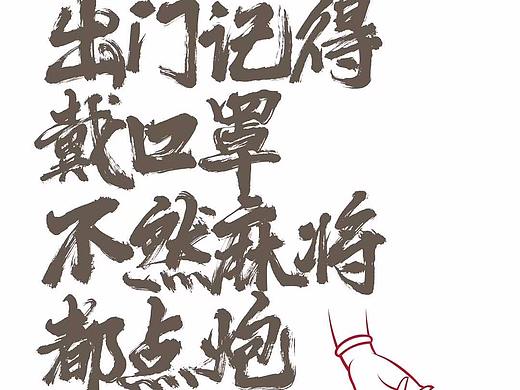 出门记得
戴口罩
不然麻将
都点炮